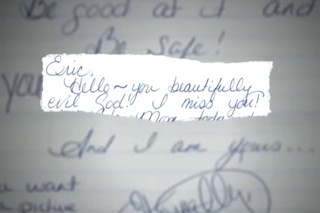 Be good at it and
Be Safe!
you
Eric,
Hello~you beautifully
evil God! I miss you!
And I am yours...
u want
picture